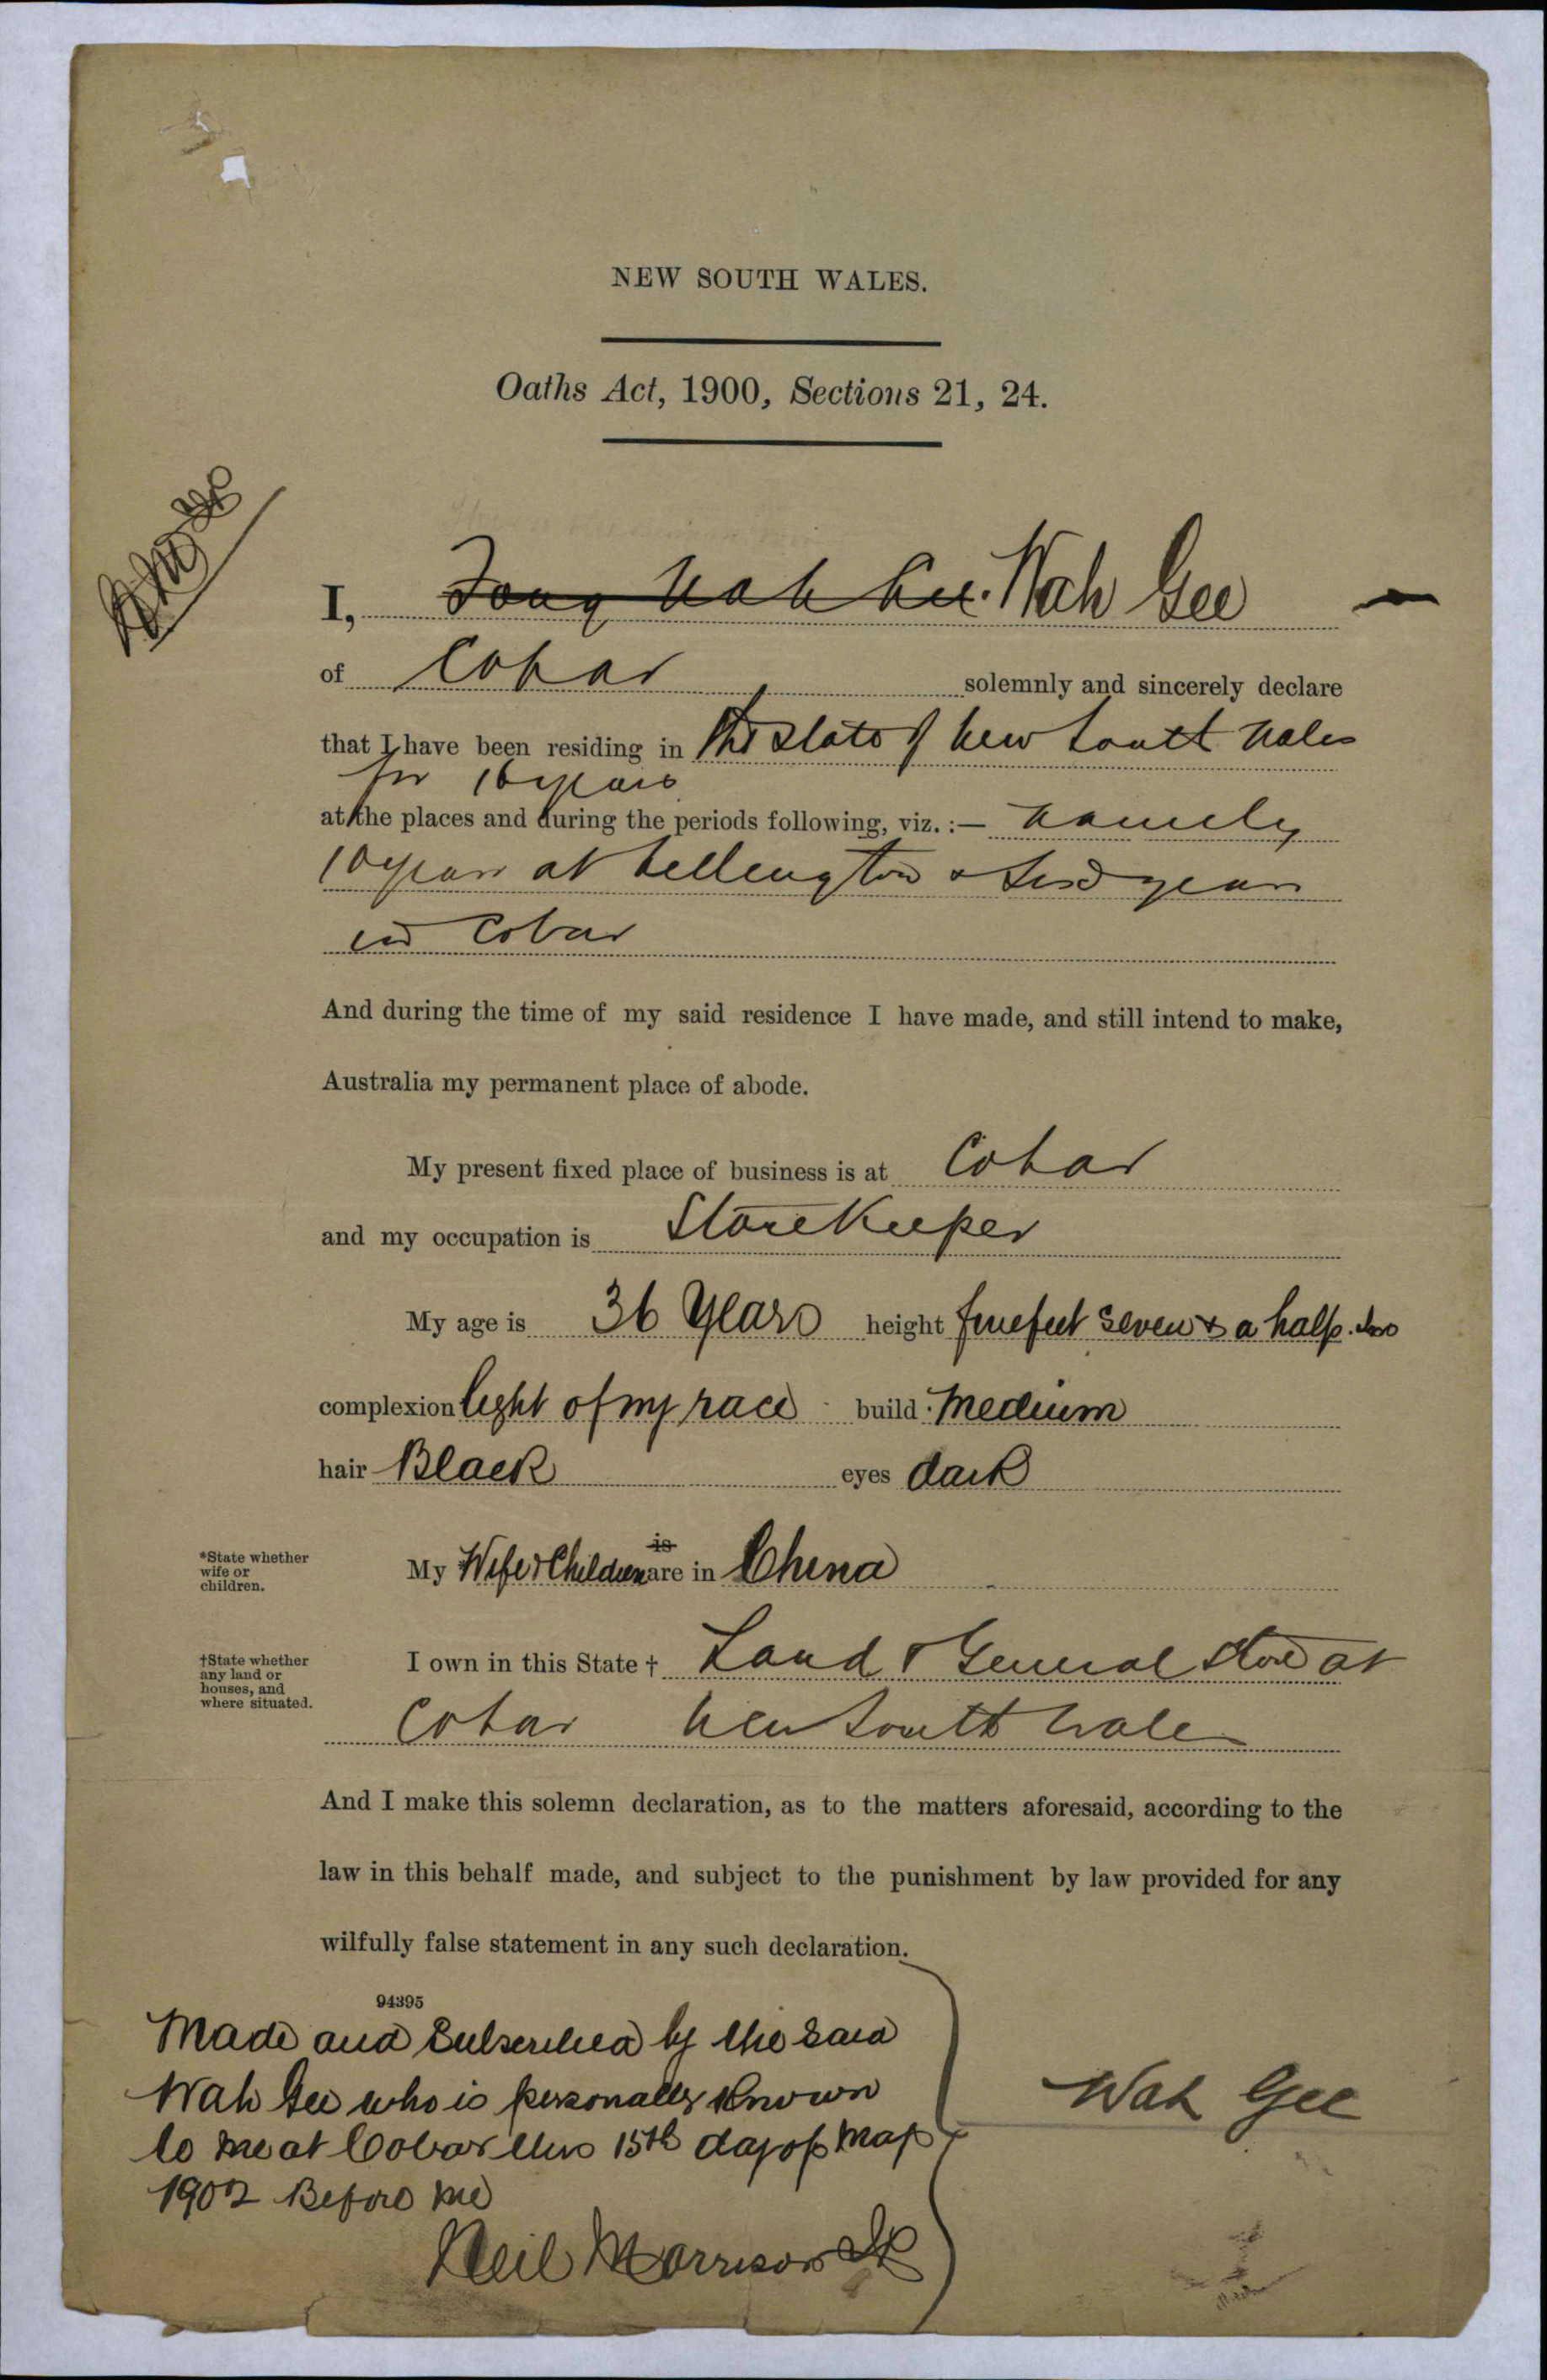 NEW SOUTH WALES.
Oaths Act, 1900, Sections 21, 24.
I, Wah Gee
of Cobar solemnly and sincerely declare
that I have been residing in the State of New South Wales
for 16 years
at the places and during the periods following, viz. :— namely
10 years at Wellington & years
in Cobar
And during the time of my said residence I have made, and still intend to make,
Australia my permanent place of abode.
My present fixed place of business is at Cobar
and my occupation is StoreKeeper
My age is 36 Years height five feet seven & a half ins
complexion light of my race build Medium
hair Black eyes dark
*State whether
wife or
children.
is
My Wife & Children are in China
†State whether
any land or
houses, and
where situated.
I own in this State † Land & General Store at
Cobar New South Wales
And I make this solemn declaration, as to the matters aforesaid, according to the
law in this behalf made, and subject to the punishment by law provided for any
wilfully false statement in any such declaration.
94395
Made and Subscribed by the said
Wah Gee who is personally known
to me at Cobar this 15th day of May
1902 Before me
Wah Gee
Neil Morrison JP